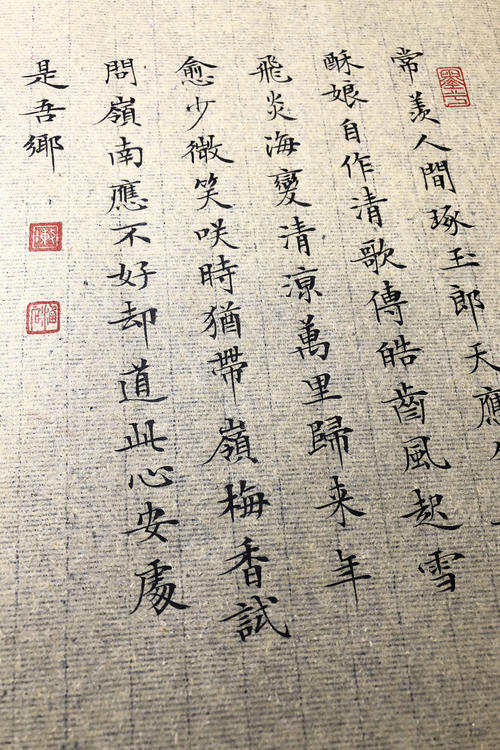 常羨人間琢玉郎天應
酥娘自作清歌傳皓齒風起雪
飛炎海變清涼萬里歸来年
愈少微笑咲時猶帶嶺梅香試
問嶺南應不好却道此心安處
是吾鄉